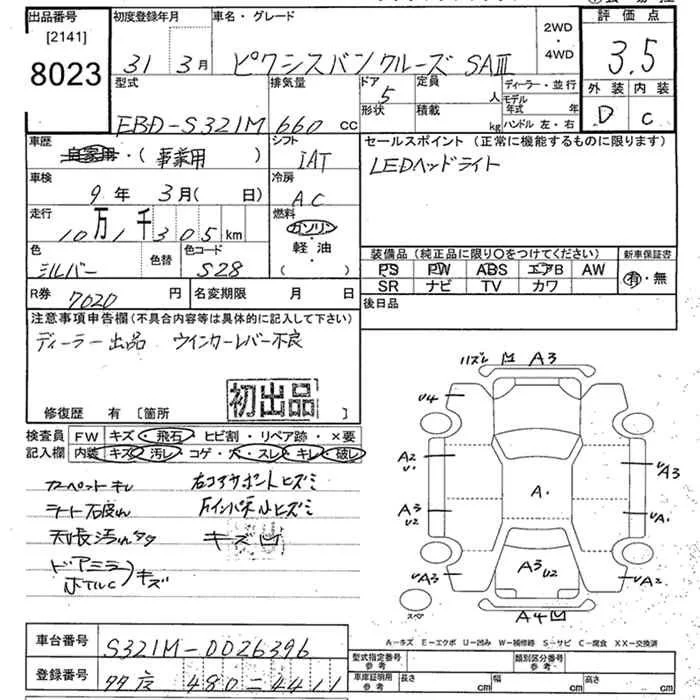 出品番号
[2141]
8023
初度登録年月
31 3月
車名・グレード
ピクシスバン クルーズ SAⅢ
2WD
・
4WD
評価点
3.5
外装 内装
D C
型式
EBD-S321M
排気量
660 cc
ドア
5
形状
定員
人
積載
kg
ディーラー・並行
モデル年式 年
ハンドル 左・右
車歴
自家用・( 事業用 )
シフト
IAT
セールスポイント (正常に機能するものに限ります)
LEDヘッドライト
車検
9年 3月( 日)
冷房
AC
走行
10万1千305km
燃料
ガソリン
軽・油
( )
色
シルバー
色替
色コード
S28
装備品 (純正品に限り○をつけてください)
PS PW ABS エアB AW
SR ナビ TV カワ
新車保証書
有・無
R券 7020 円
名変期限 月 日
後日品
注意事項申告欄(不具合内容等は具体的に記入して下さい)
ディーラー出品 ウインカーレバー不良
初出品
修復歴 有 [箇所 ]
検査員
記入欄
FW キズ・飛石・ヒビ割・リペア跡・×要
内装 キズ・汚レ・コゲ・穴・スレ・キレ・破レ
カーペットキレ
シート
天張汚れ
ドアミラー
ホイルC
キズ
右コアサポートヒズミ
キズ凹
ハズレ 凹 A3
U4
A2
U1
A3
U2
A3
A1
A3
U2
UA3
UA1
UA3
UA2
A4凹
スペア
A-キズ E-エクボ U-凹み W-補修跡 S-サビ C-腐食 XX-交換済
車台番号
S321M-0026396
登録番号
480 ニ 4411
型式指定番号
参考
類別区分番号
参考
車庫証明用
参考
長さ cm
幅 cm
高さ cm